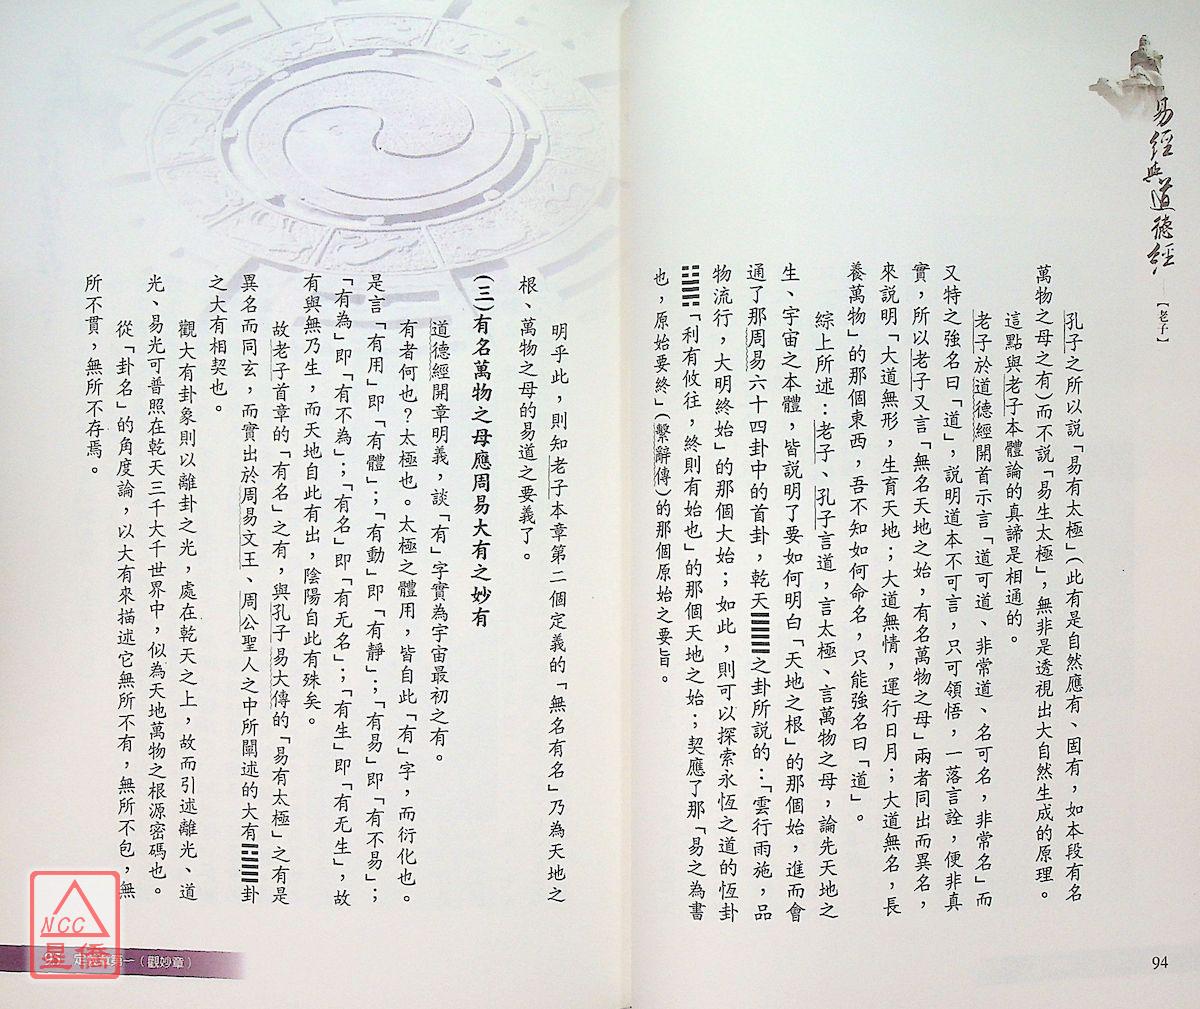 易經與道德經
【老子】
孔子之所以說「易有太極」(此有是自然應有、固有，如本段有名
萬物之母之有)而不說「易生太極」，無非是透視出大自然生成的原理。
這點與老子本體論的真諦是相通的。
老子於道德經開首示言「道可道、非常道、名可名，非常名」而
又特之強名曰「道」，說明道本不可言，只可領悟，一落言詮，便非真
實，所以老子又言「無名天地之始，有名萬物之母」兩者同出而異名，
來說明「大道無形，生育天地；大道無情，運行日月；大道無名，長
養萬物」的那個東西，吾不知如何命名，只能強名曰「道」。
綜上所述：老子、孔子言道，言太極、言萬物之母，論先天地之
生、宇宙之本體，皆說明了要如何明白「天地之根」的那個始，進而會
通了那周易六十四卦中的首卦，乾天䷀之卦所說的：「雲行雨施，品
物流行，大明終始」的那個大始；如此，則可以探索永恆之道的恆卦
䷟「利有攸往，終則有始也」的那個天地之始；契應了那「易之為書
也，原始要終」(繫辭傳)的那個原始之要旨。
94
明乎此，則知老子本章第二個定義的「無名有名」乃為天地之
根、萬物之母的易道之要義了。
(三)有名萬物之母應周易大有之妙有
道德經開章明義，談「有」字實為宇宙最初之有。
有者何也？太極也。太極之體用，皆自此「有」字，而衍化也。
是言「有用」即「有體」；「有動」即「有靜」；「有易」即「有不易」；
「有為」即「有不為」；「有名」即「有无名」；「有生」即「有无生」，故
有與無乃生，而天地自此有出，陰陽自此有殊矣。
故老子首章的「有名」之有，與孔子易大傳的「易有太極」之有是
異名而同玄，而實出於周易文王、周公聖人之中所闡述的大有䷍卦
之大有相契也。
觀大有卦象則以離卦之光，處在乾天之上，故而引述離光、道
光、易光可普照在乾天三千大千世界中，似為天地萬物之根源密碼也。
從「卦名」的角度論，以大有來描述它無所不有，無所不包，無
所不貫，無所不存焉。
95
第一(觀妙章)
NCC
星僑